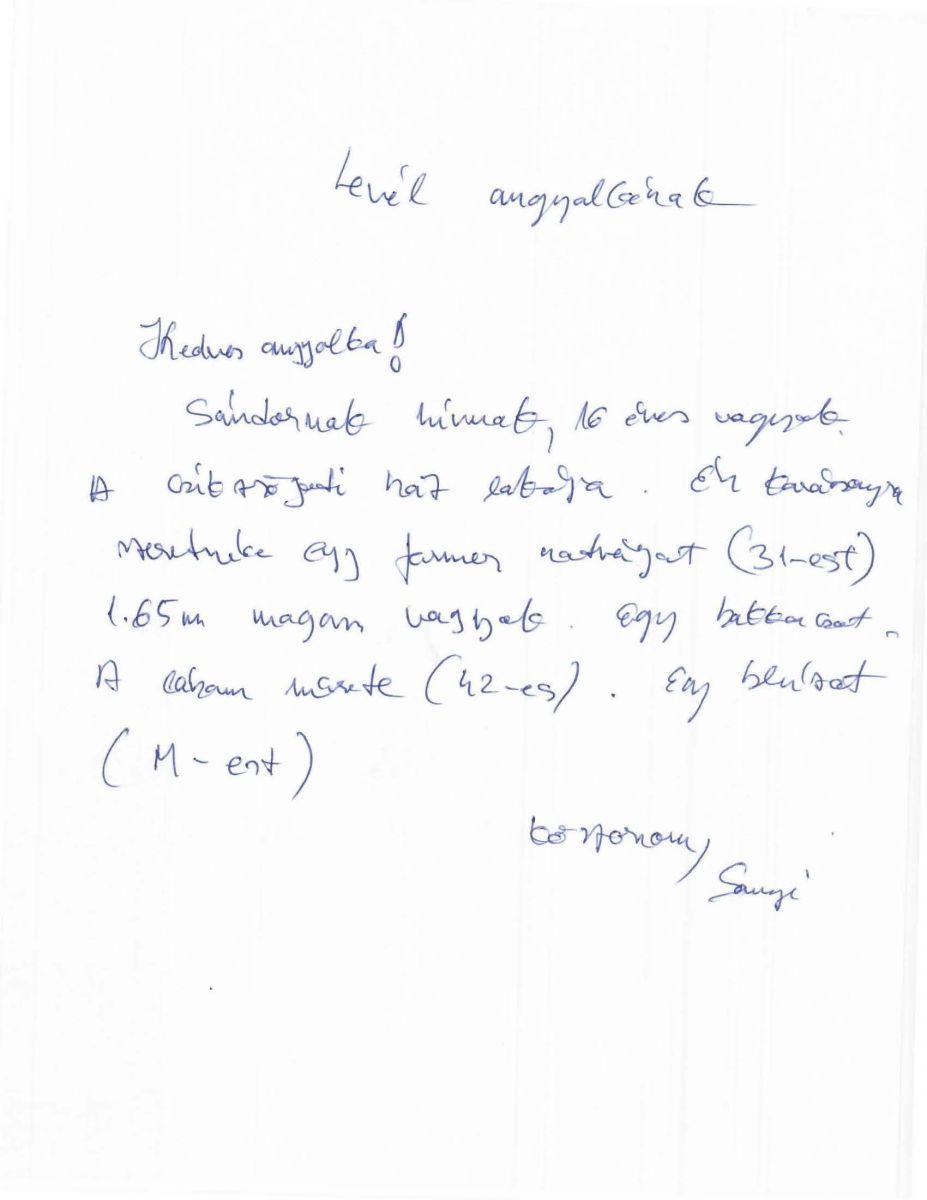 Levél angyalkának
Kedves angyalka!
Sándornak hívnak, 16 éves vagyok.
A ház lakója. Én karácsonyra
szeretnéke egy farmer nadrágat (31-est)
1.65m magam vagyok. Egy bakkacsot.
A lábam mérete (42-es). Egy blúzot
(M-est)
köszönöm,
Sanyi